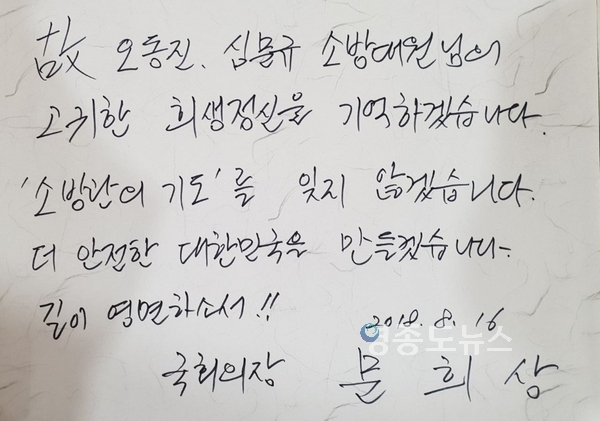 故 오동진. 심문규 소방대원님의
고귀한 희생정신을 기억하겠습니다.
'소방관의 기도'를 잊지 않겠습니다.
더 안전한 대한민국을 만들겠습니다.
길이 영면하소서!!
2018. 8. 16
영종도뉴스
국회의장 문희상